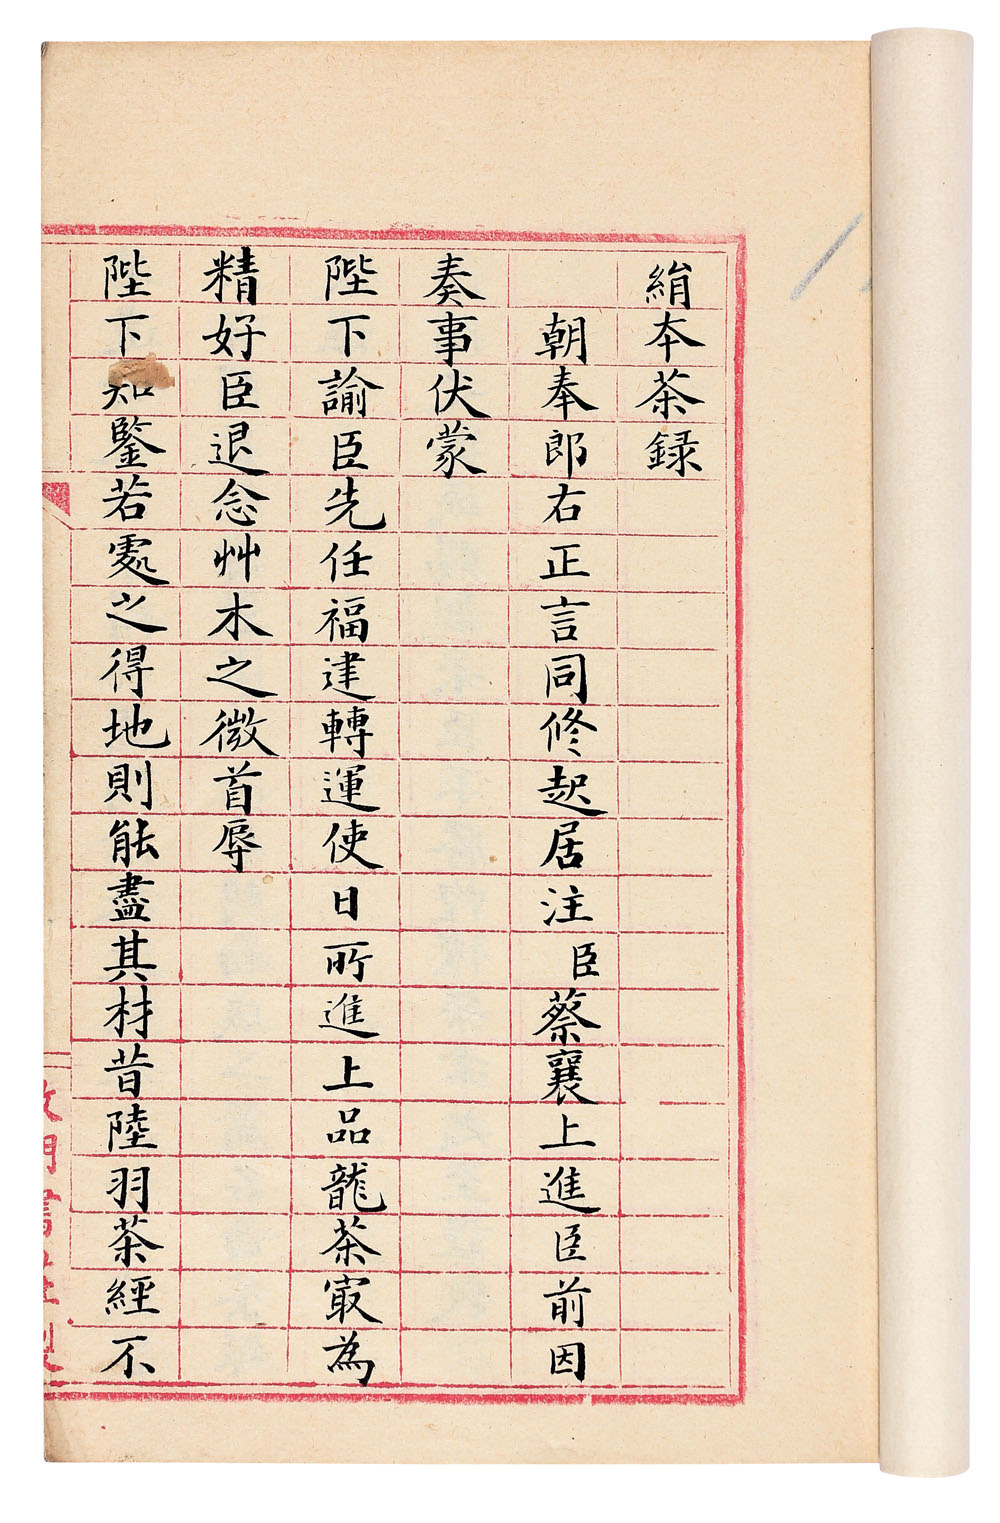 絹本茶録
朝奉郎右正言同修起居注臣蔡襄上進臣前因
奏事伏蒙
陛下諭臣先任福建轉運使日所進上品龍茶㝡為
精好臣退念艸木之微首辱
陛下知鑒若處之得地則能盡其材昔陸羽茶經不